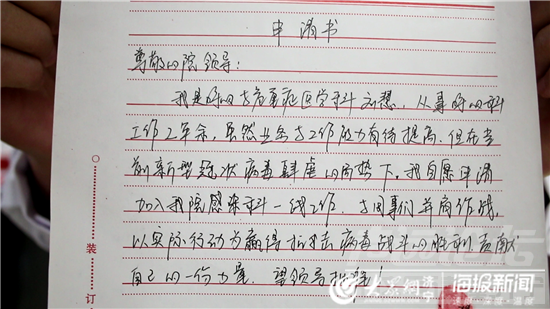 申请书
尊敬的院领导:
我是呼吸与危重症医学科刘慧, 从事呼吸科
工作2年余, 虽然业务与工作能力有待提高, 但在当
前新型冠状病毒肆虐的局势下, 我自愿申请
加入我院感染科一线工作, 与同事们并肩作战,
以实际行动为赢得抗击病毒战斗的胜利贡献
自己的一份力量, 望领导批准!
装
订
大众网 海报新闻